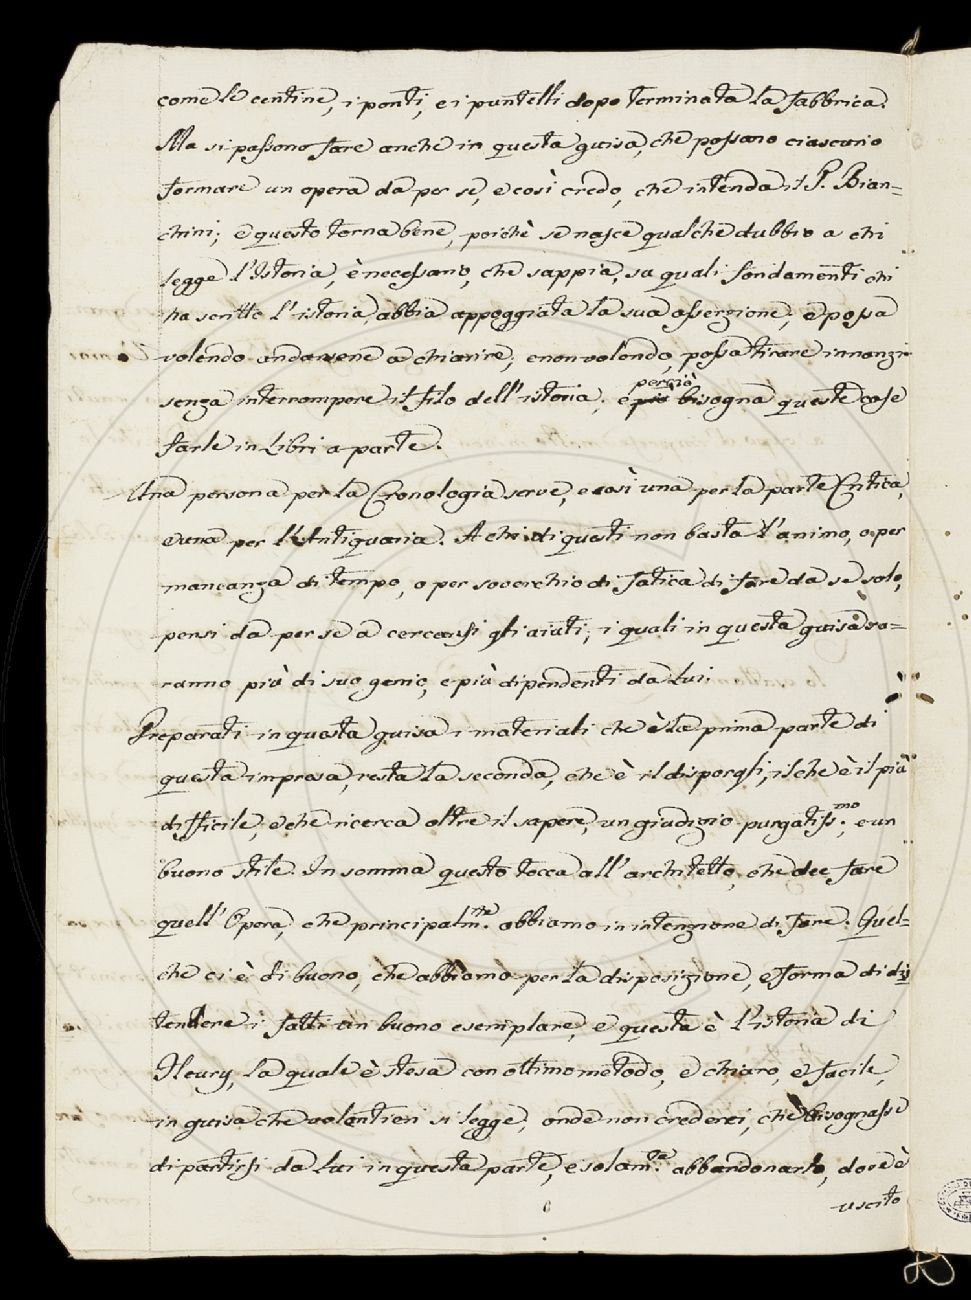 come le centine, i ponti, e i puntelli dopo terminata la fabbrica.
Ma si possono fare anche in questa guisa, che possano ciascuno
formare un opera da per sé, e così credo, che intenda il P. Bian=
chini; e questo torna bene, poichè se nasce qualche dubbio a chi
legge l'Istoria, è necessario, che sappia, su quali fondamenti chi
ha scritto l'istoria, abbia appoggiata la sua asserzione, e possa
volendo andarsene a chiarire; e non volendo, possa tirare innanzi
senza interrompere il filo dell'istoria; e perciò bisogna queste cose
farle in Libri a parte.
Una persona per la Cronologia serve, e così una per la parte Critica,
e una per l'Antiquaria. A chi di questi non basta l'animo, o per
mancanza di tempo, o per soverchio di fatica di fare da se solo,
pensi da per se a cercarsi gli aiuti, i quali in questa guisa sa=
ranno più di suo genio, e più dipendenti da Lui.
Preparati in questa guisa i materiali che è la prima parte di
questa impresa, resta la seconda, che è il disporgli, il che è il più
difficile, e che ricerca oltre il sapere, un giudizio purgatiss.mo, e un
buono stile. In somma questo tocca all'architetto, che dee fare
quell'Opera, che principalm.te abbiamo in intenzione di fare. Quel=
che ci è di buono, è che abbiamo per la disposizione, e forma di dis
tendere i fatti un buono esemplare, e questa è l'istoria di
Fleury, la quale è stesa con ottimo metodo, e chiaro, e facile,
in guisa che volentieri si legge, onde non crederei, che bisognasse
dipartirsi da Lui in questa parte, e solam.te abbandonarlo, dove è
uscito